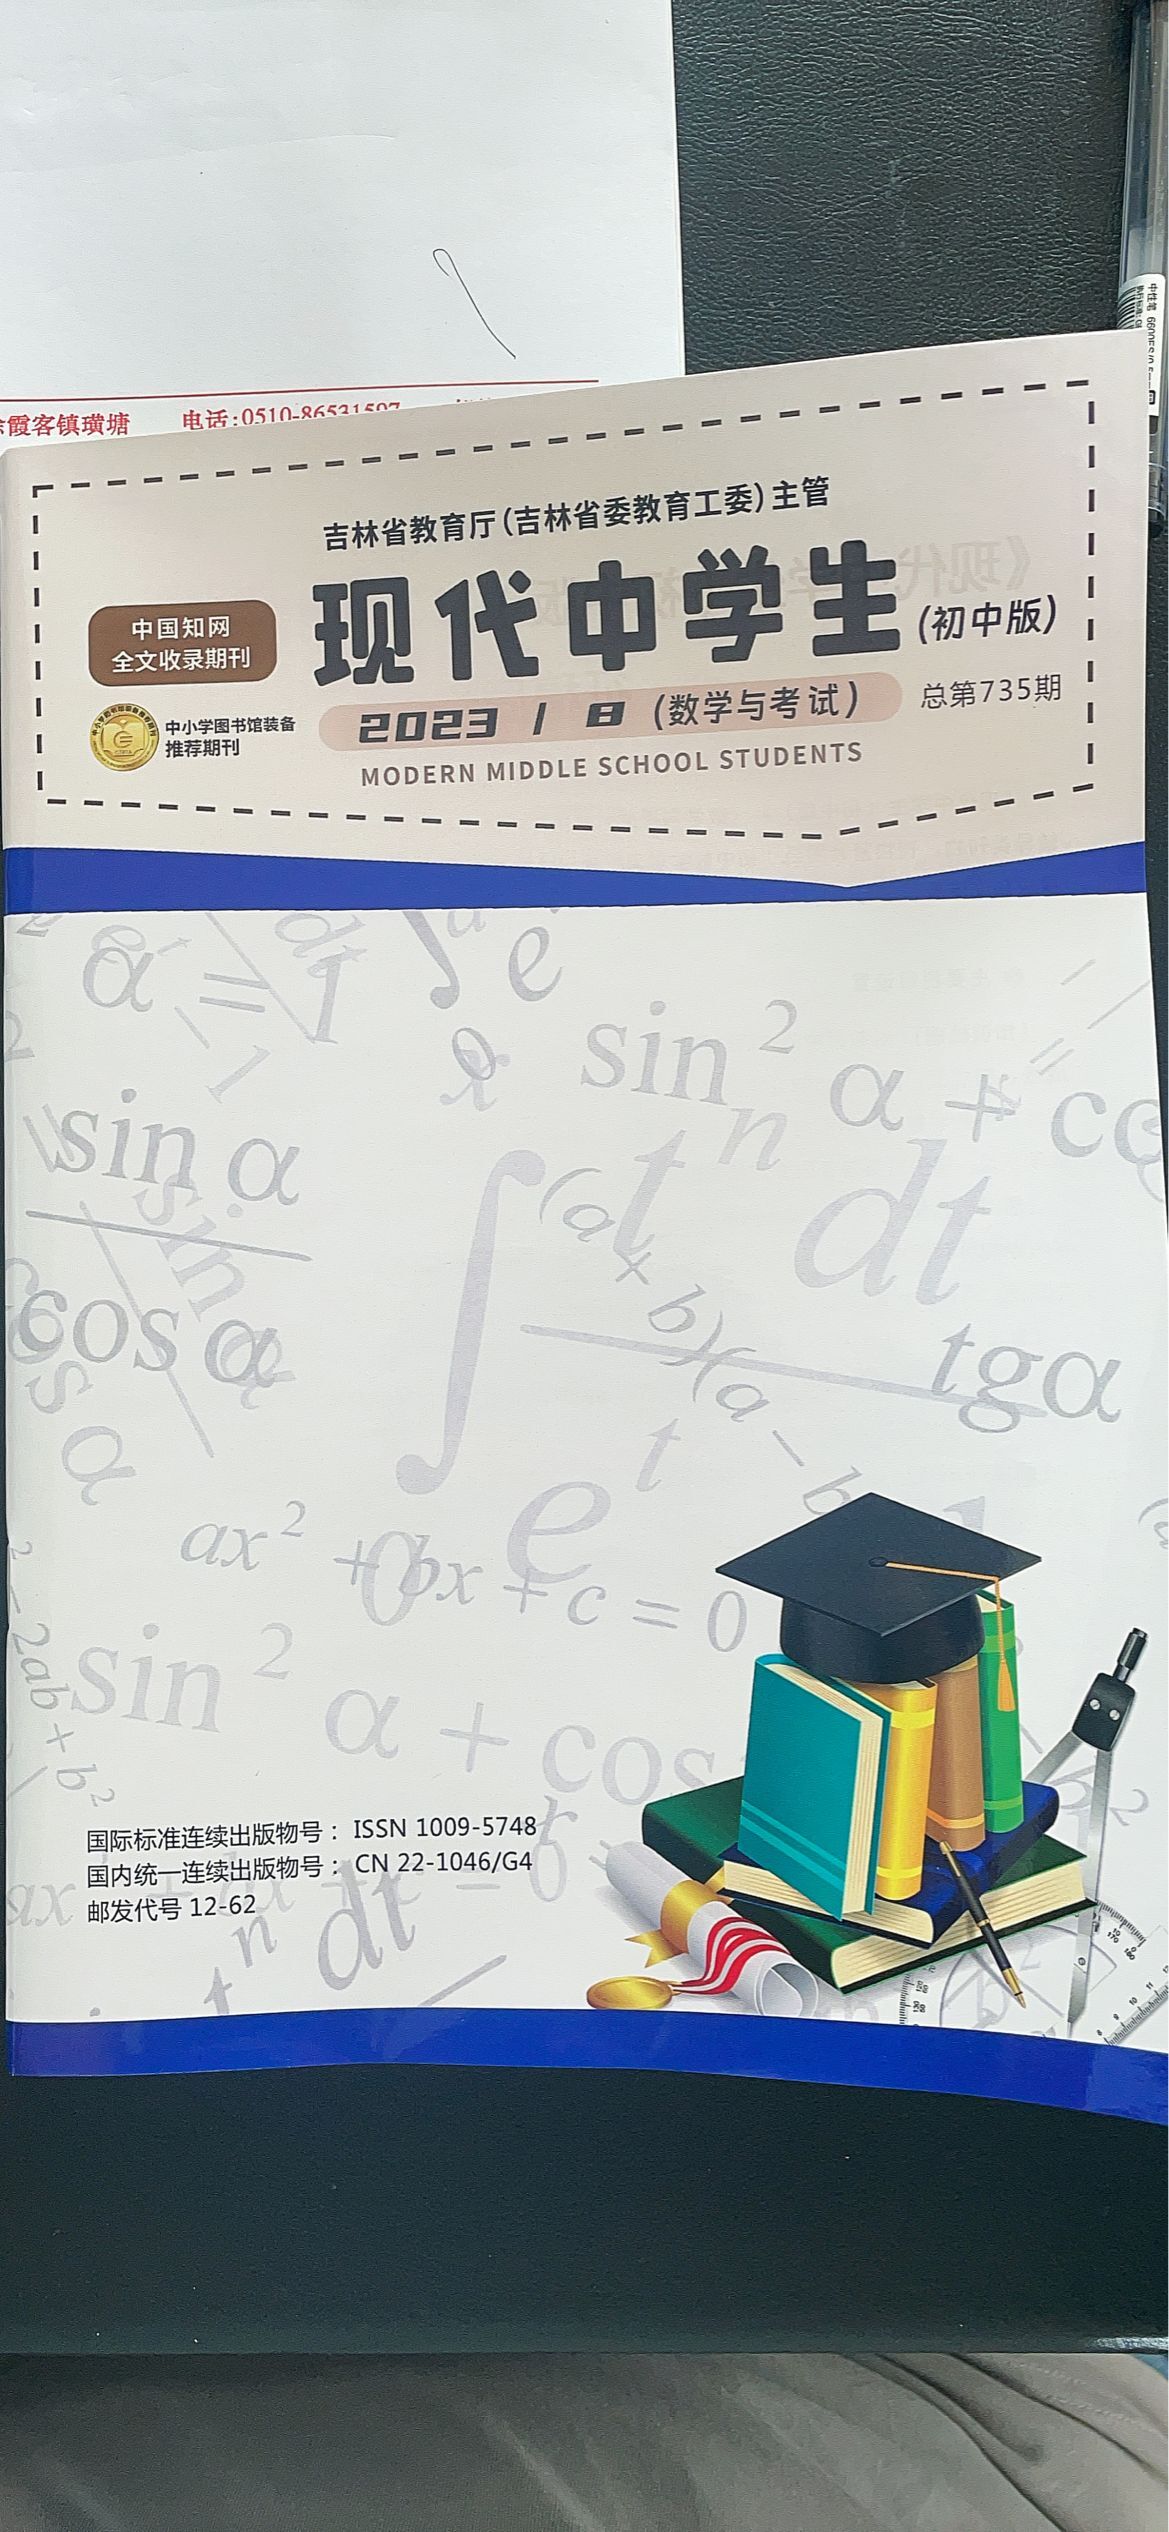 霞客镇璜塘 电话:0510-86531597
中性笔
吉林省教育厅(吉林省委教育工委)主管
现代中学生(初中版)
中国知网
全文收录期刊
2023 / 8 (数学与考试) 总第735期
中小学图书馆装备
推荐期刊
MODERN MIDDLE SCHOOL STUDENTS
sin² α + co
sin α
cos α
dt
tgα
ax² + bx + c = 0
sin² α + cos
国际标准连续出版物号: ISSN 1009-5748
国内统一连续出版物号: CN 22-1046/G4
邮发代号 12-62